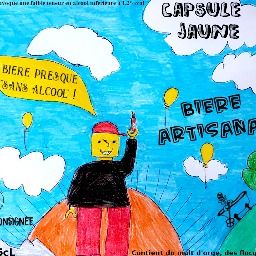 evoque une faible teneur en alcool inferieure à 1,2% vol
CAPSULE
JAUNE
BIERE PRESQUE
SANS ALCOOL !
BIERE
ARTISANA
ONSIGNÉE
5cL
Contient du malt d'orge, des floc